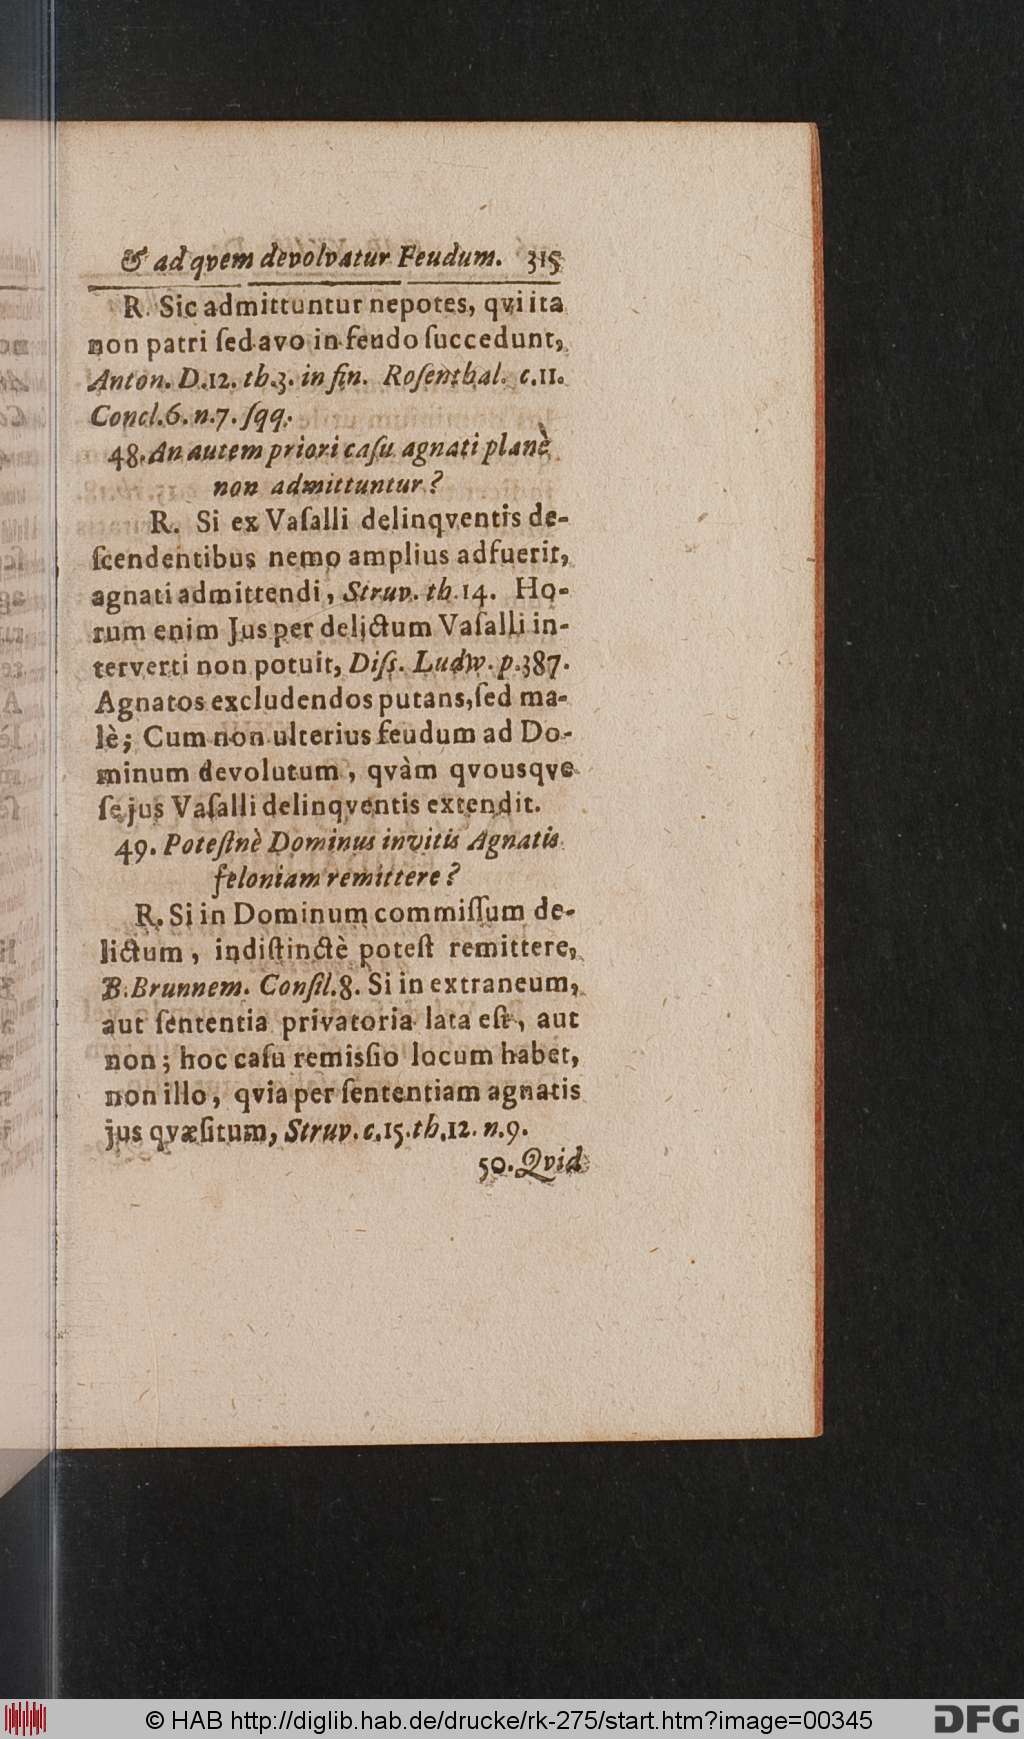 & ad qvem devolvatur Feudum. 315
R. Sic admittuntur nepotes, qvi ita
non patri ſed avo in feudo ſuccedunt,
Anton. D.12. th.3. in fin. Roſenthal. c.11.
Concl.6. n.7. ſqq.
48. An autem priori caſu agnati planè
non admittuntur?
R. Si ex Vaſalli delinqventis de-
ſcendentibus nemo amplius adfuerit,
agnati admittendi, Struv. th.14. Ho-
rum enim Jus per delictum Vaſalli in-
terverti non potuit, Diſſ. Ludw. p.387.
Agnatos excludendos putans, ſed ma-
lè; Cum non ulterius feudum ad Do-
minum devolutum, qvàm qvousqve
ſe jus Vaſalli delinqventis extendit.
49. Poteſtnè Dominus invitis Agnatis
feloniam remittere?
R. Si in Dominum commiſſum de-
lictum, indiſtinctè poteſt remittere,
B. Brunnem. Conſil.8. Si in extraneum,
aut ſententia privatoria lata eſt, aut
non; hoc caſu remiſſio locum habet,
non illo, qvia per ſententiam agnatis
jus qvæſitum, Struv. c.15. th.12. n.9.
50. Qvid
© HAB http://diglib.hab.de/drucke/rk-275/start.htm?image=00345
DFG